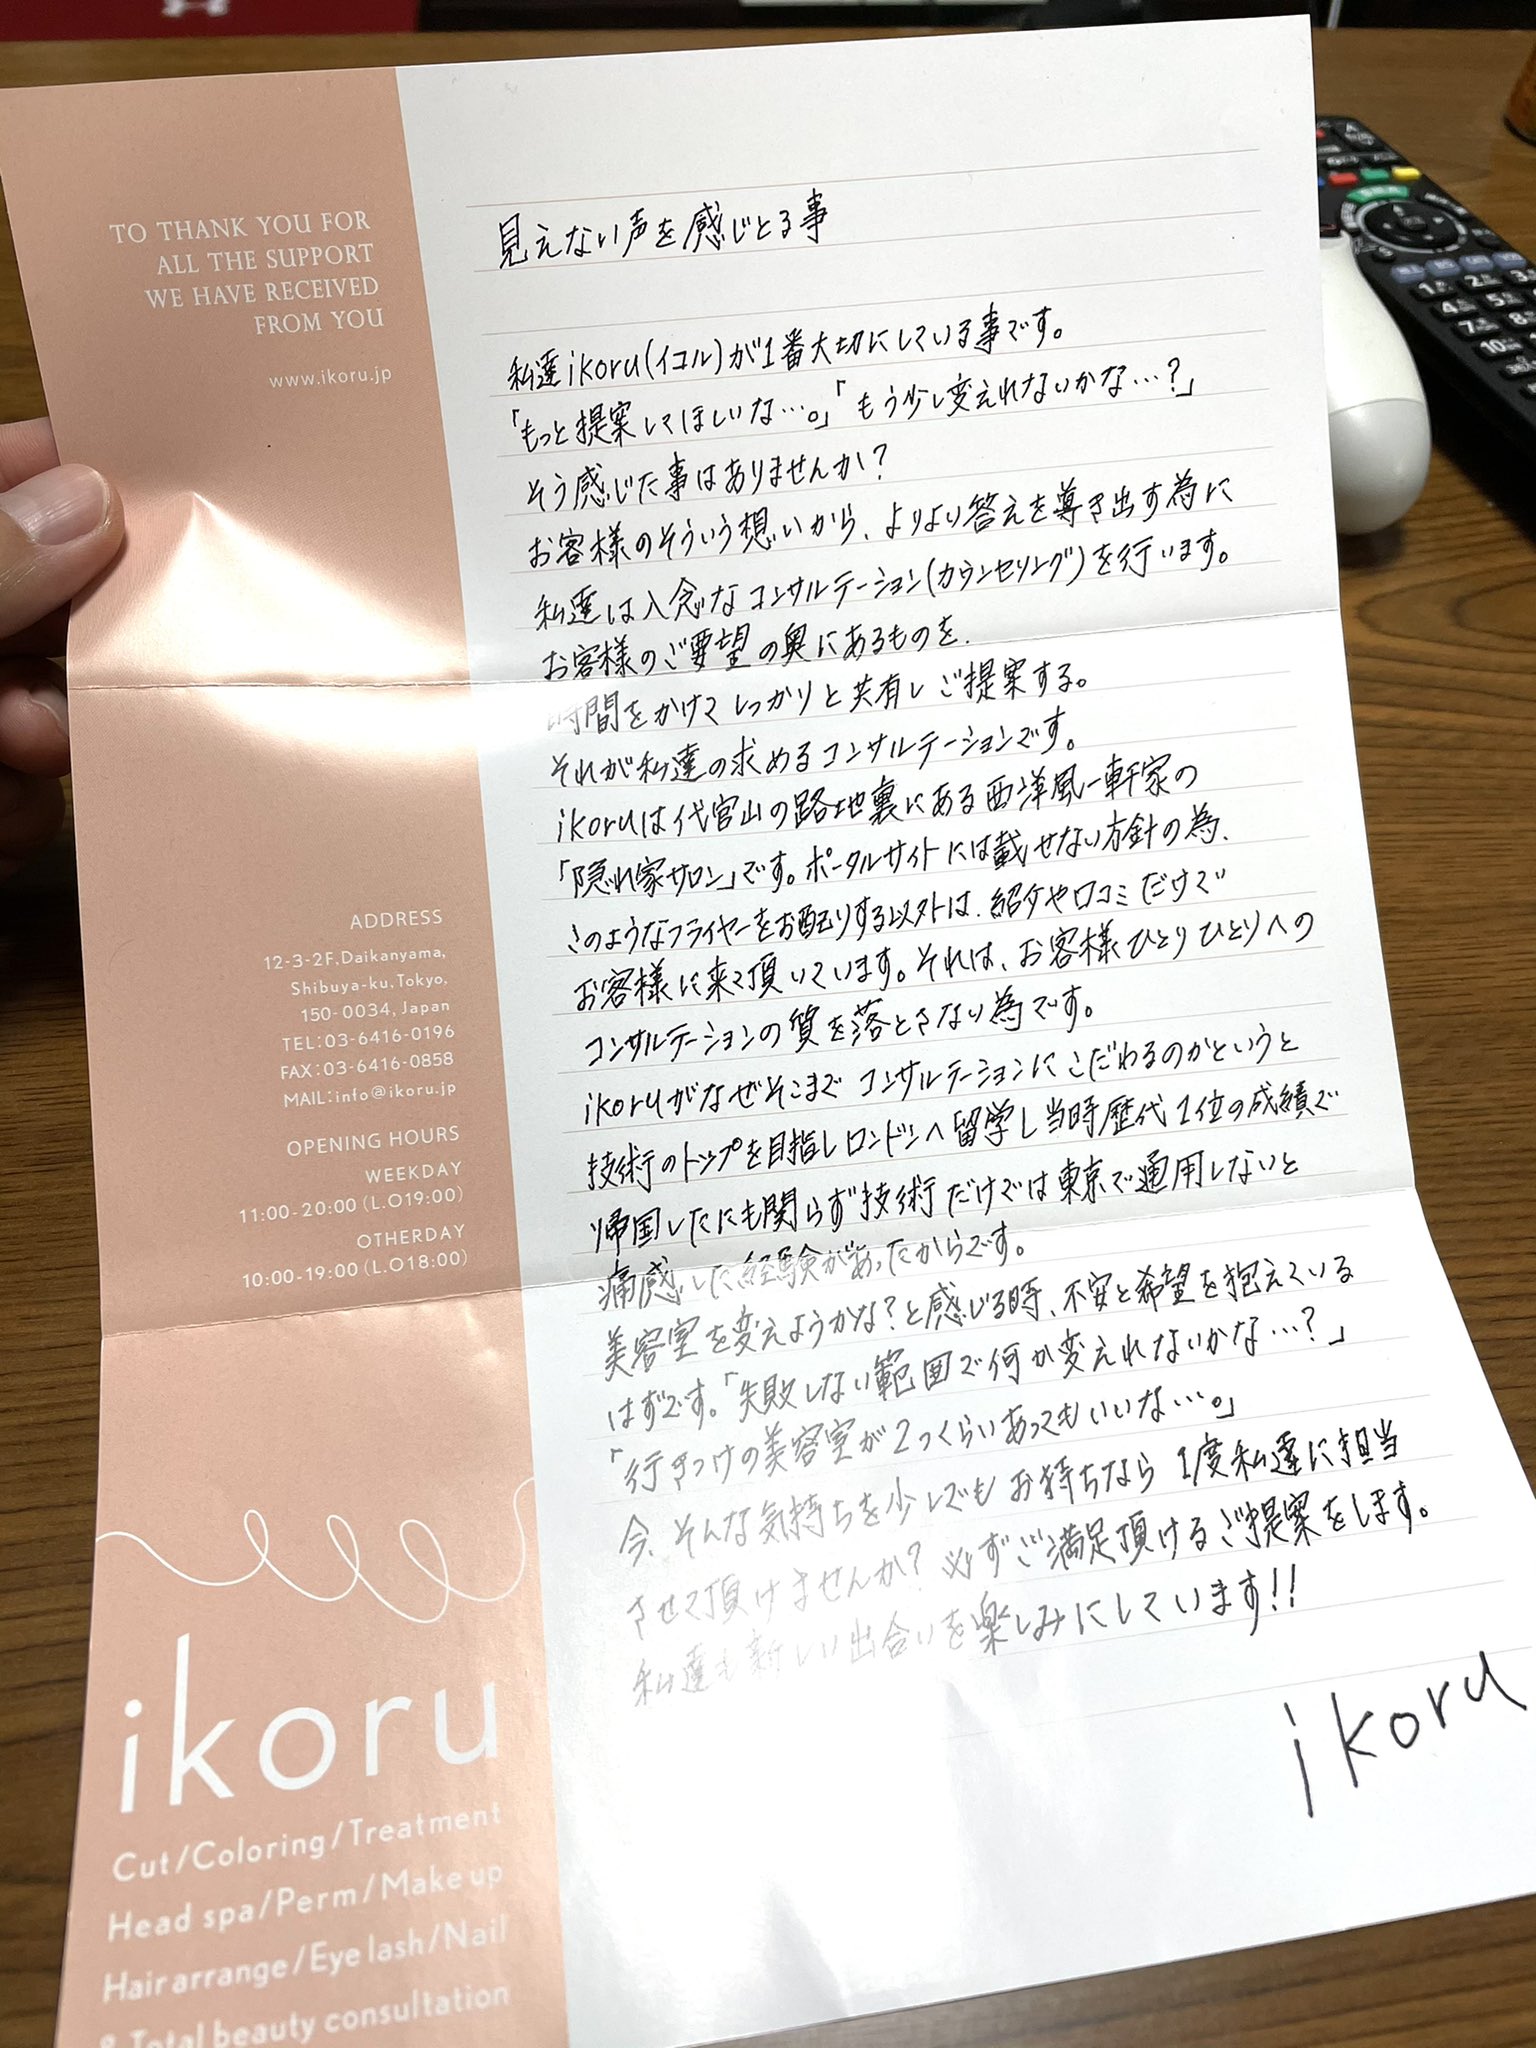 TO THANK YOU FOR
ALL THE SUPPORT
WE HAVE RECEIVED
FROM YOU
www.ikoru.jp
ADDRESS
12-3-2F,Daikanyama,
Shibuya-ku,Tokyo,
150-0034, Japan
TEL:03-6416-0196
FAX:03-6416-0858
MAIL:info@ikoru.jp
OPENING HOURS
WEEKDAY
11:00-20:00(L.O19:00)
OTHERDAY
10:00-19:00(L.O18:00)
ikoru
Cut/Coloring/Treatment
Head spa/Perm/Make up
Hair arrange/Eye lash/Nail
& Total beauty consultation
見えない声を感じとる事
私達ikoru(イコル)が1番大切にしている事です。
「もっと提案してほしいな…。」「もう少し変えれないかな…?」
そう感じた事はありませんか?
お客様のそういう想いから、よりよい答えを導き出す為に
私達は入念なコンサルテーション(カウンセリング)を行います。
お客様のご要望の奥にあるものを、
時間をかけてしっかりと共有しご提案する。
それが私達の求めるコンサルテーションです。
ikoruは代官山の路地裏にある西洋風一軒家の
「隠れ家サロン」です。ポータルサイトには載せない方針の為、
このようなフライヤーをお配りする以外は、紹介や口コミだけで
お客様に来て頂いています。それは、お客様ひとりひとりへの
コンサルテーションの質を落とさない為です。
ikoruがなぜそこまでコンサルテーションにこだわるのかというと
技術のトップを目指しロンドンへ留学し当時歴代1位の成績で
帰国したにも関らず技術だけでは東京で通用しないと
痛感した経験があったからです。
美容室を変えようかな?と感じる時、不安と希望を抱えている
はずです。「失敗しない範囲で何か変えれないかな…?」
「行きつけの美容室が2つくらいあってもいいな…。」
今、そんな気持ちを少しでもお持ちなら1度私達に担当
させて頂けませんか?必ずご満足頂けるご提案をします。
私達も新しい出合いを楽しみにしています!!
ikoru